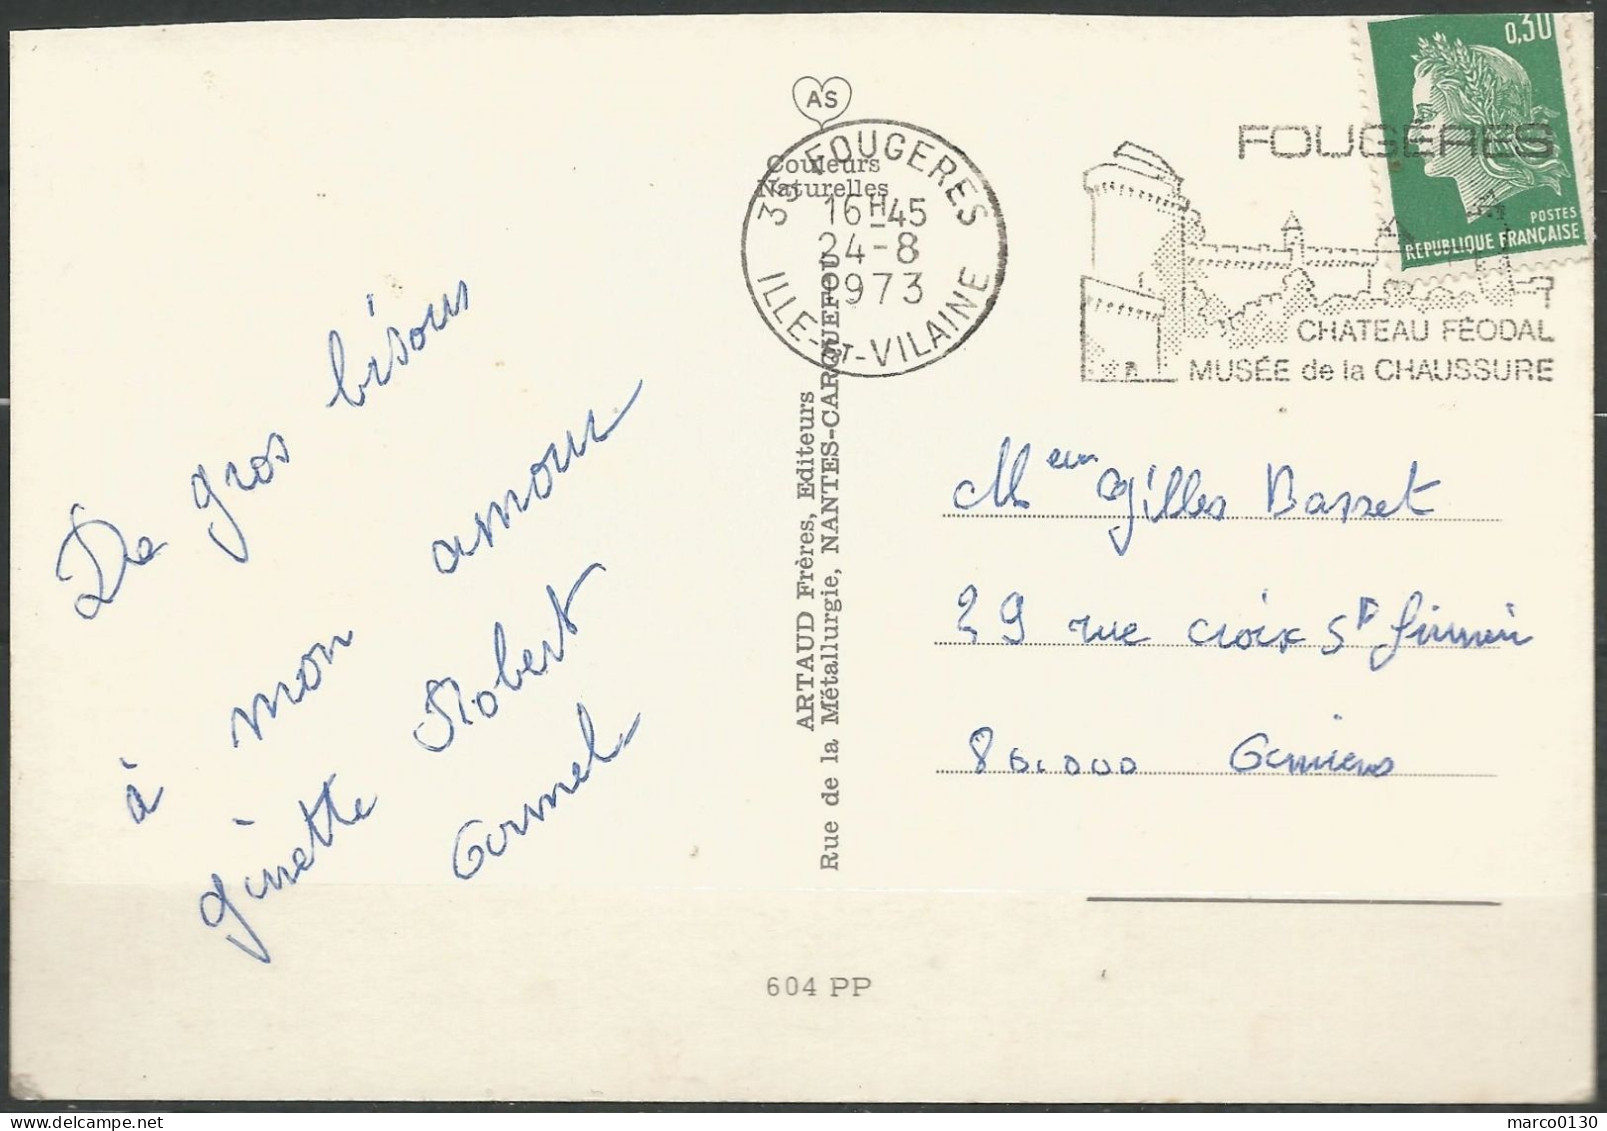 De gros bisous
à mon amour
ginette Robert
Armel
AS
Couleurs
Naturelles
35 FOUGERES
16H45
24-8
1973
ILLE-ET-VILAINE
ARTAUD Frères, Editeurs
Rue de la Métallurgie, NANTES-CARQUEFOU
604 PP
0,30
POSTES
REPUBLIQUE FRANÇAISE
FOUGÈRES
CHATEAU FÉODAL
MUSÉE de la CHAUSSURE
Meur Gilles Basset
29 rue croix St firmin
80.000 Amiens
marco0130